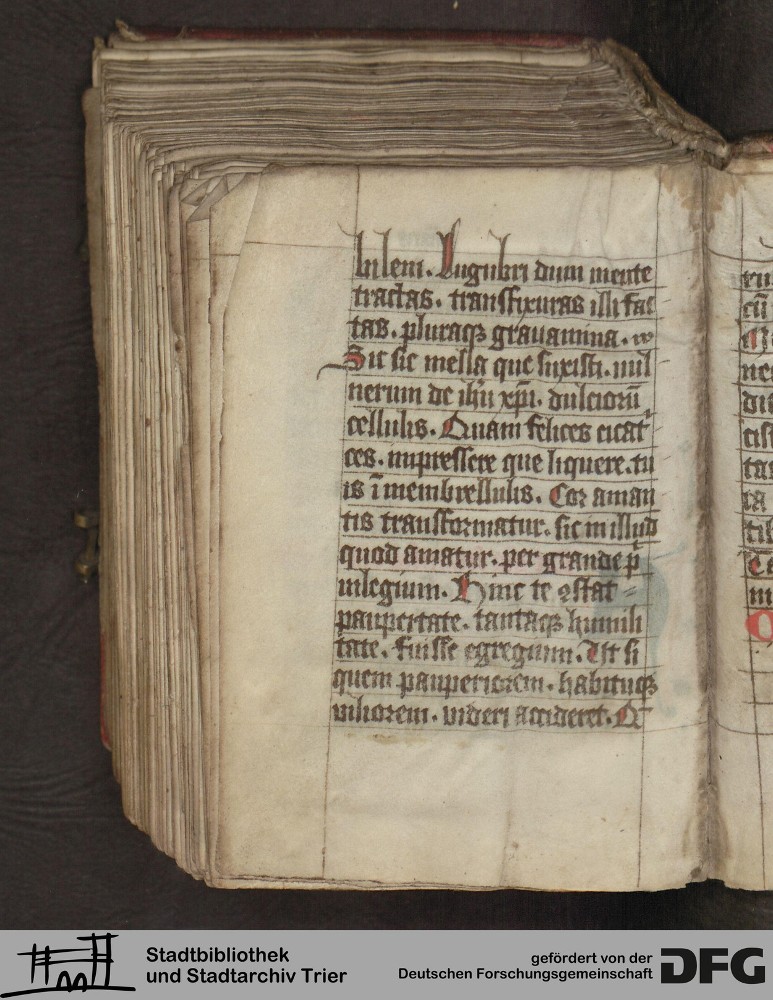 lulem. Lugubri dum mente
tractas. transfixuras illi fac
tas. pluraqꝫ grauamina.
Sic sic mella que suxisti. uul
nerum de ihu xpi. dulciorū
cellulis. Quam felices cicat
ces. impressere que liquere. tu
is ī membrellulis. Cor aman
tis transformatur. sic in illud
quod amatur. per grande p̲
uilegium. Hinc te ꝯstat
paupertate. tantaqꝫ humili
tate. fuisse egregium. Ut si
quem pauperiorem. habituqꝫ
uiliorem. videri accideret.
Stadtbibliothek
und Stadtarchiv Trier
gefördert von der
Deutschen Forschungsgemeinschaft
DFG